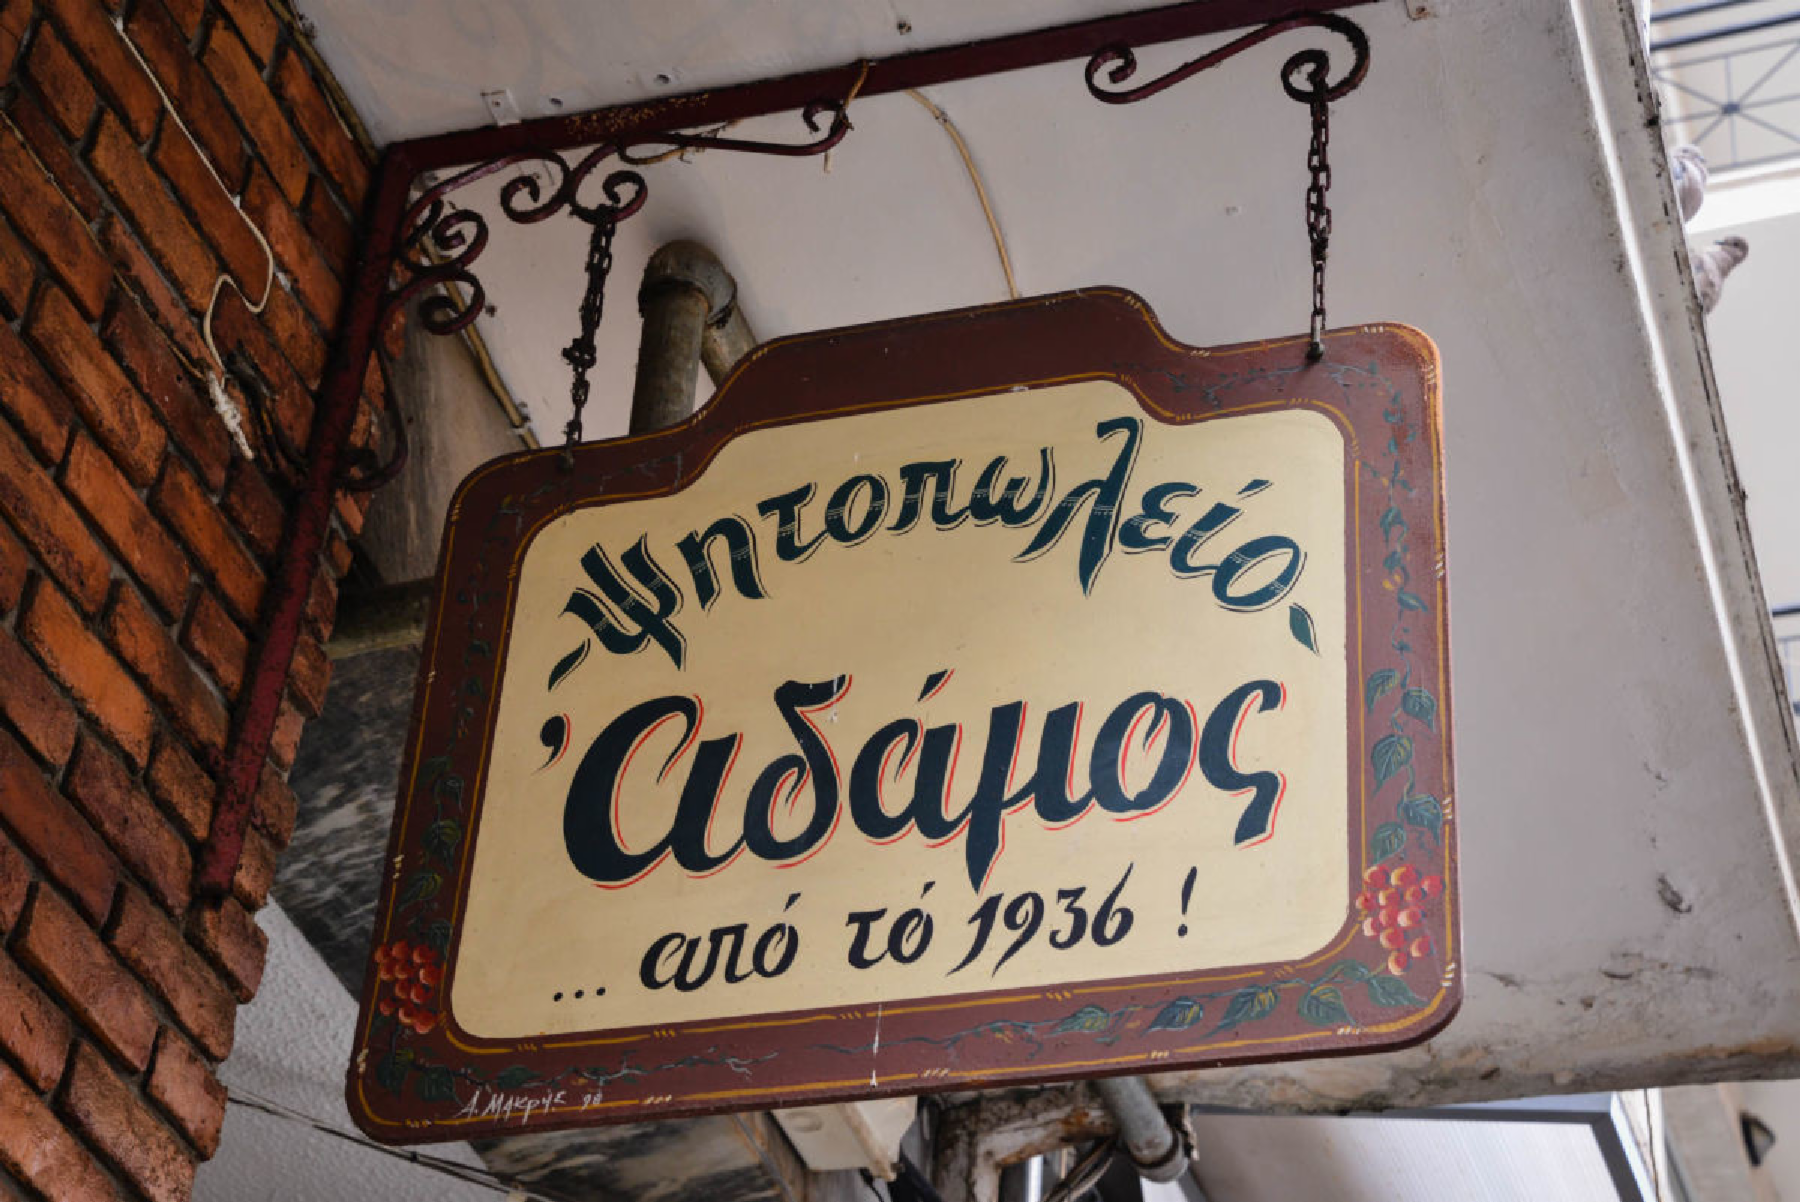 Ψητοπωλείο
Ἀδάμος
... από τό 1936 !
Α. ΜΑΚΡΗΣ 98